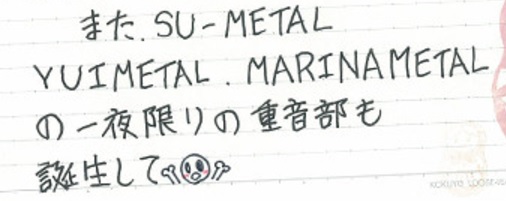 また、SU-METAL
YUIMETAL . MARINAMETAL
の一夜限りの重音部も
誕生して